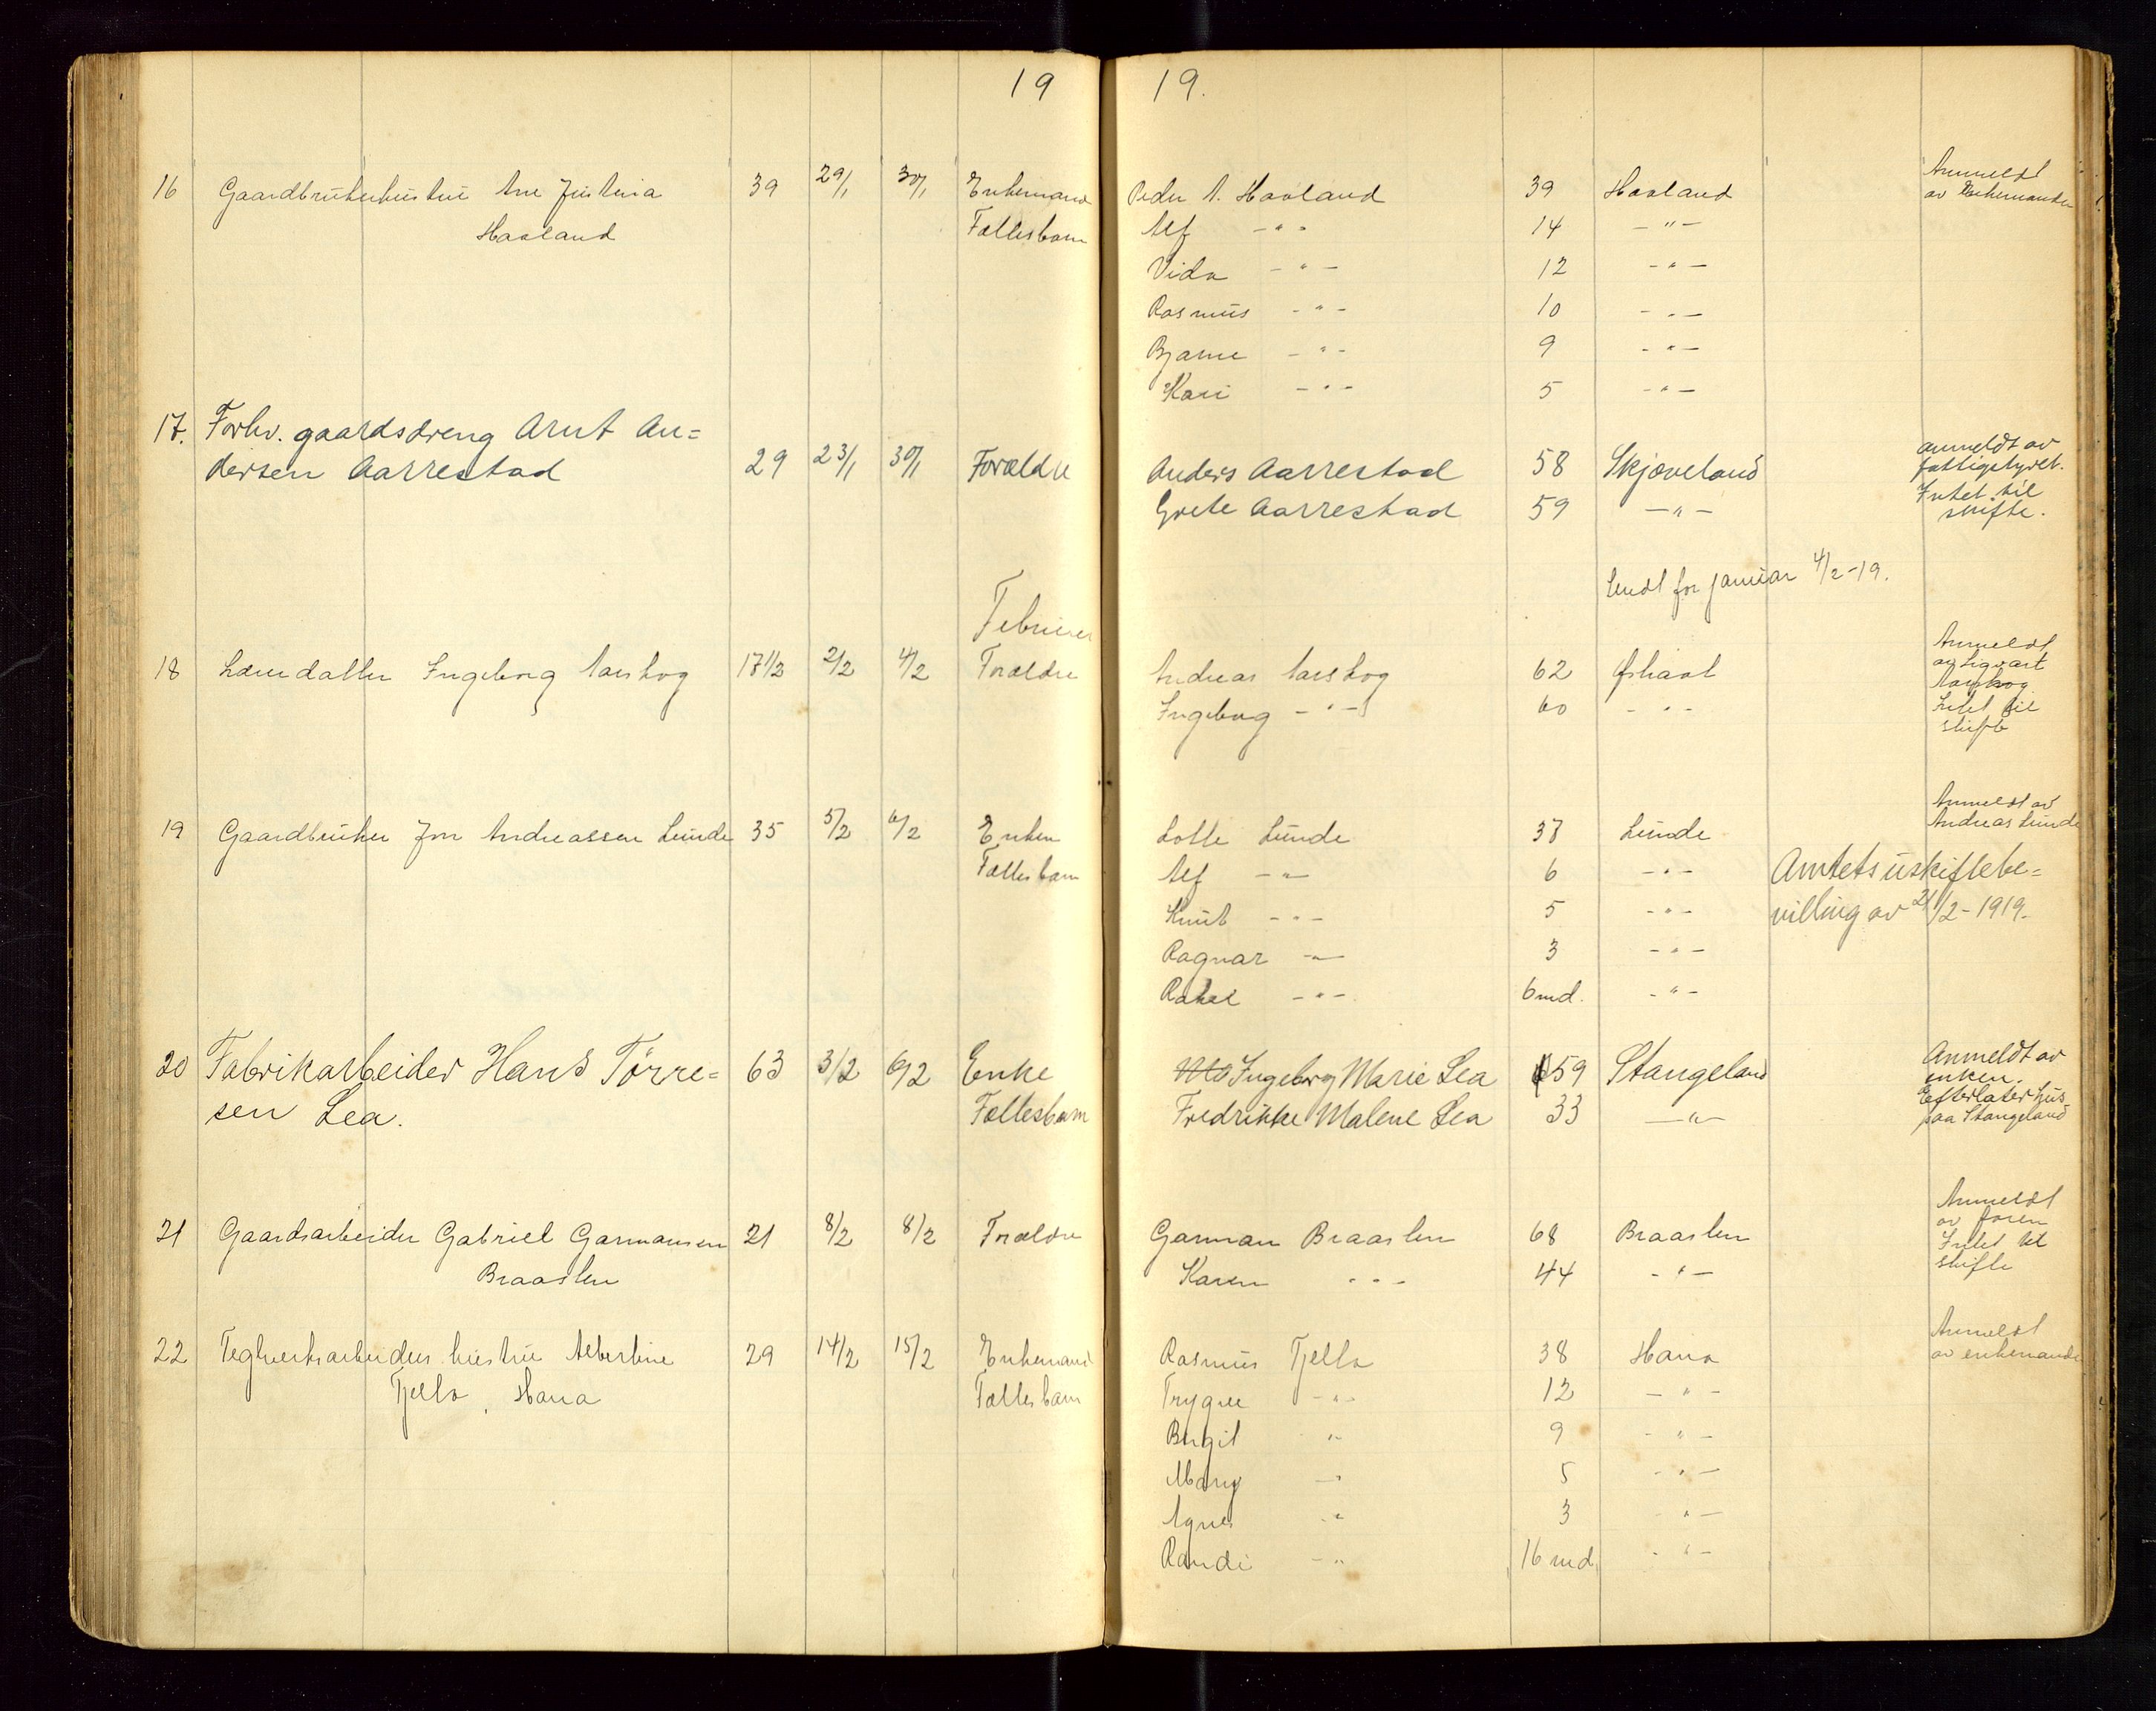 19 19.
16 Gaardbrukerhustru Ane Justina 39 29/1 30/1 Enkemand Peder A. Haaland 39 Haaland Anmeldt
Haaland Fællesbarn Alf - " - 14 - " - av Enkemanden
Vida - " - 12 - " -
Rasmus - " - 10 - " -
Bjarne - " - 9 - " -
Kari - " - 5 - " -
17. Forhv. gaardsdreng Arnt An=
dersen Aarrestad 29 23/1 30/1 Forældre Anders Aarrestad 58 Skjæveland Anmeldt av
fattigstyret.
Grete Aarrestad 59 - " - Intet til
skifte.
Sendt for januar 4/2-19.
Februar
18 Læredatter Ingeborg Aarskog 17 1/2 2/2 4/2 Forældre Andreas Aarskog 62 Anmeldt
Ingeborg - " - 60 - " - av Sigvart
Aarskog
Intet til
skifte
19 Gaardbruker Jon Andreassen Lunde 35 5/2 6/2 Enken Lotte Lunde 37 Lunde Anmeldt av
Andreas Lunde
Fællesbarn Alf - " - 6 - " - Amtets uskiftebe=
Knut - " - 5 - " - villing av 21/2-1919.
Ragnar - " - 3 - " -
Rakel - " - 6 md. - " -
20 Fabrikarbeider Hans Tørre= 63 3/2 6/2 Enke Ingeborg Marie Lea 59 Stangeland Anmeldt av
enken.
sen Lea. Fællesbarn Fredrikke Malene Lea 33 - " - Efterlater hus
paa Stangeland
21 Gaardsarbeider Gabriel Garmansen 21 8/2 8/2 Forældre Garman Braasten 68 Braasten Anmeldt
av faren
Braasten Karen - " - 44 - " - Intet til
skifte
22 Teglverksarbeiders hustru Albertine 29 14/2 15/2 Enkemand Rasmus Tjelta 38 Hana Anmeldt
av enkemanden
Tjelta, Hana Fællesbarn Trygve - " - 12 - " -
Birgit " 9 - " -
Mary - " 5 - " -
Agnes " 3 - " -
Randi - " 16 md. - " -